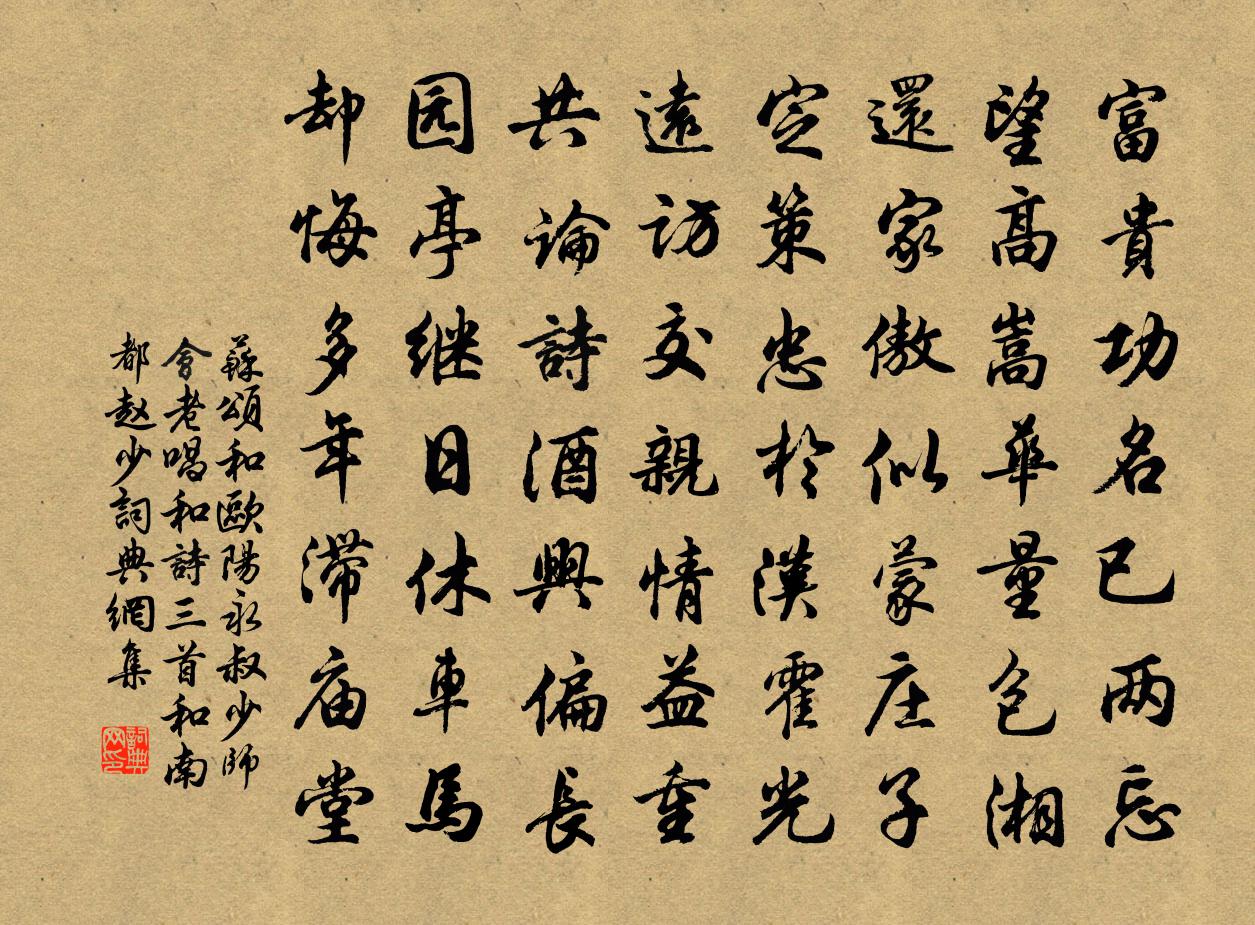 富貴功名已两忘
望高嵩華量包湘
還家傲似蒙庄子
定策忠於漢霍光
遠訪交親情益重
共論詩酒興偏長
园亭继日休車馬
却悔多年滞庙堂
蘇頌和歐陽永叔少師
會老唱和詩三首和南
都赵少詞典網集
詞典
网印